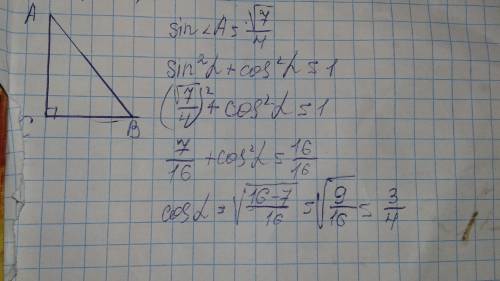 A
B
sin∠A = √7/4
sin²α + cos²α = 1
(√7/4)² + cos²α = 1
7/16 + cos²α = 16/16
cosα = √(16-7)/16 = √9/16 = 3/4